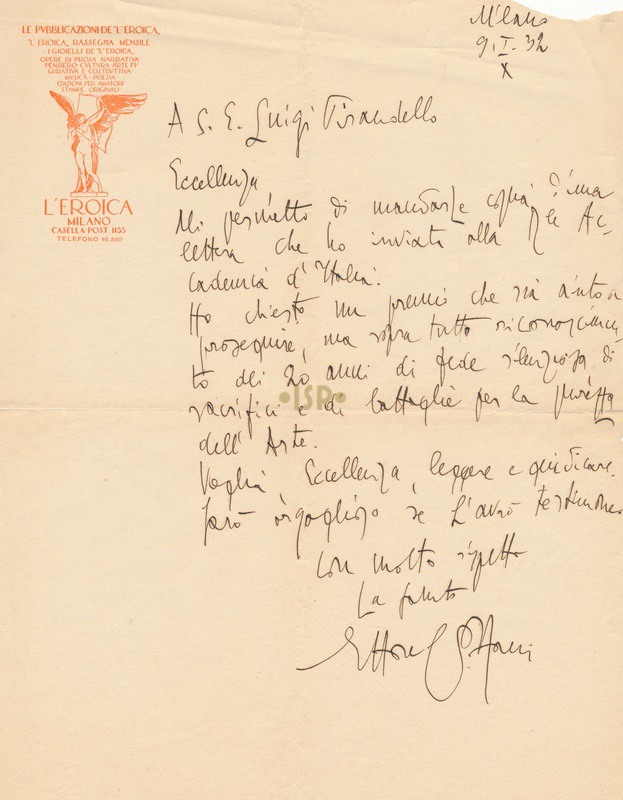 Milano
9.I.32
X
LE PVBBLICAZIONI DE "L'EROICA,
"L'EROICA, RASSEGNA MENSILE
I GIOIELLI DE "L'EROICA,
OPERE DI PROSA NARRATIVA
PENSIERO CVLTVRA ARTE FI°
GVRATIVA E COSTRVTTIVA
MVSICA POESIA
EDIZIONI PER AMATORI
STAMPE ORIGINALI
L'EROICA
MILANO
CASELLA POST 1155
TELEFONO
A S. E. Luigi Pirandello
Eccellenza,
Mi permetto di mandarLe copia d'una
lettera che ho inviata alla Re Ac-
cademia d'Italia.
Ho chiesto un premio che sia aiuto a
proseguire, ma sopra tutto riconoscimen
to dei 20 anni di fede silenziosa di
sacrifici e di battaglie per la purezza
dell'Arte.
Voglia, Eccellenza, leggere e giudicare.
Sarò orgoglioso se L'avrò testimone
con molto rispetto
La saluto
Ettore Cozzani
•ISP•